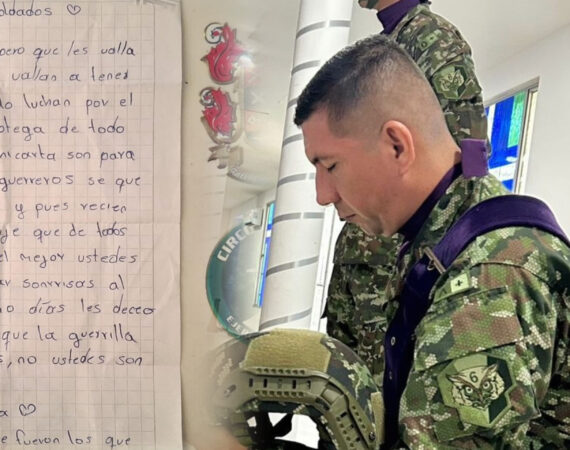 oldados ♡
pero que les valla
vallan a tener
do luchan por el
otega de todo
nicarta son para
guerreros se que
y pues recien
je que de todos
el mejor ustedes
ar sonrrisas al
no días les deceo
que la guerrilla
s, no ustedes son
a ♡
e fueron los que
CIRC
EJE
G